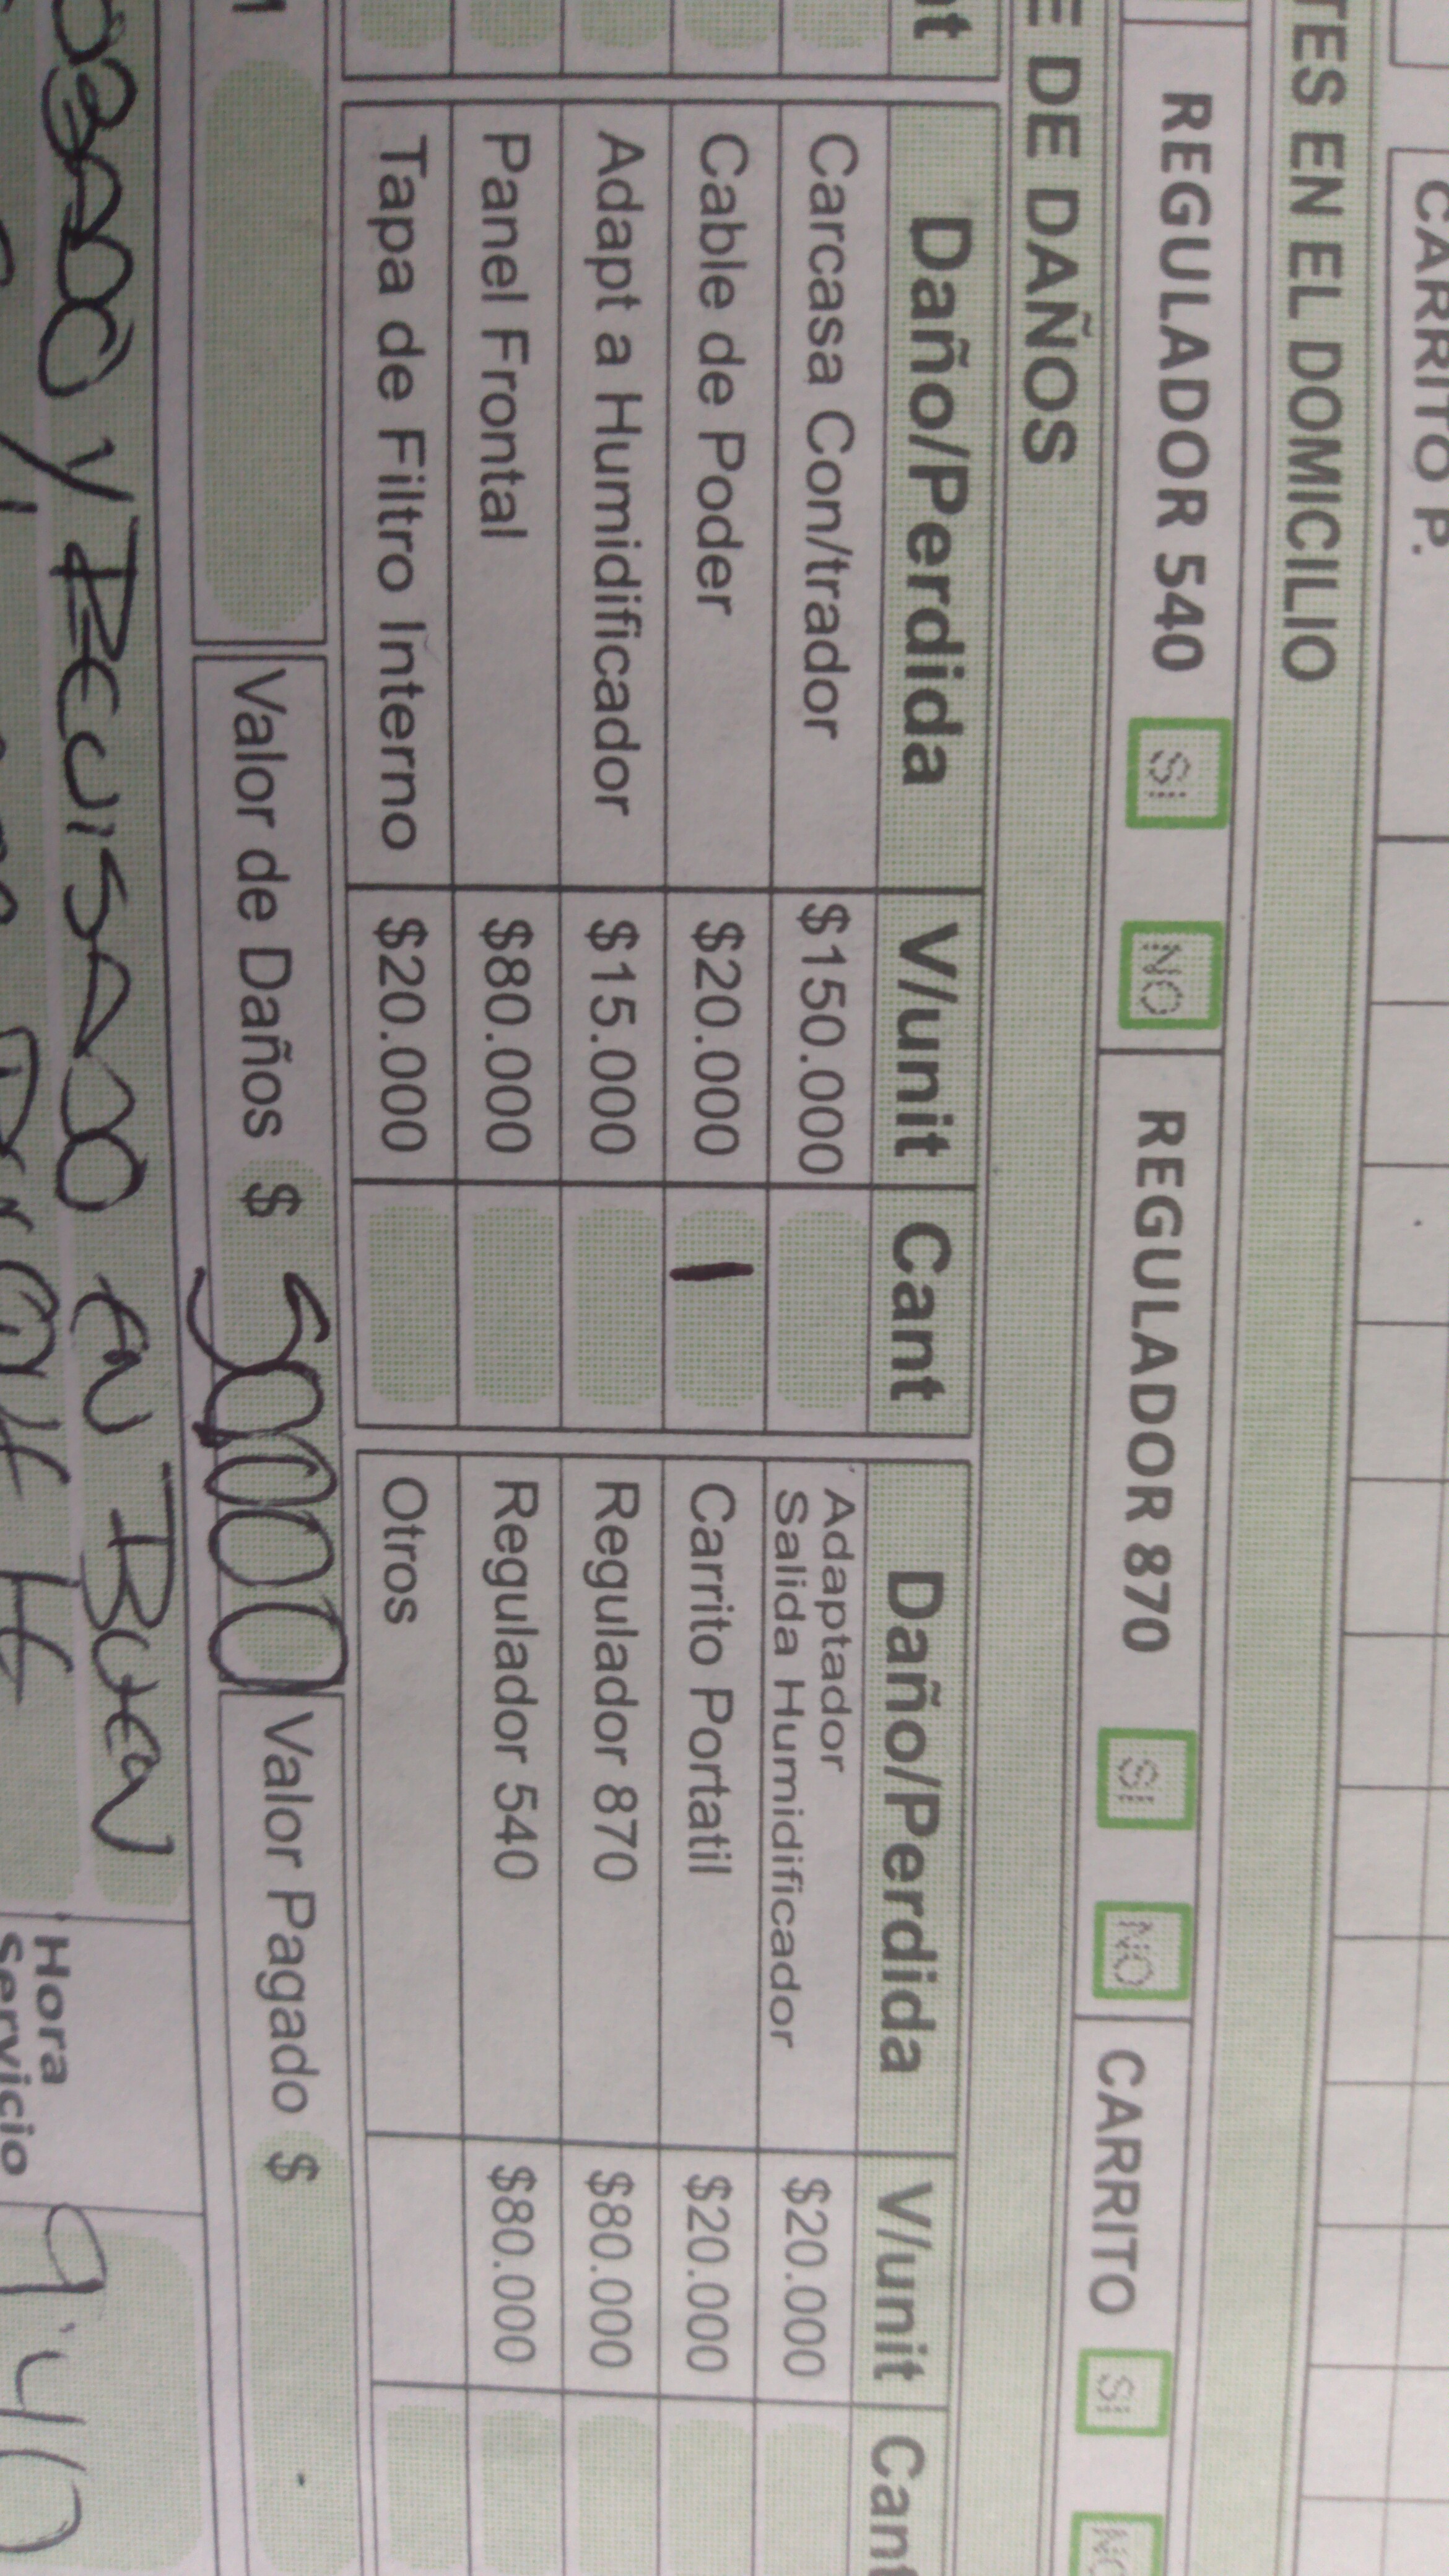 CARRITO P.
TES EN EL DOMICILIO
REGULADOR 540 SI NO REGULADOR 870 SI NO CARRITO SI NO
E DE DAÑOS
nt Daño/Perdida V/unit Cant Daño/Perdida V/unit Cant
Carcasa Con/trador $150.000 Adaptador Salida Humidificador $20.000
Cable de Poder $20.000 1 Carrito Portatil $20.000
Adapt a Humidificador $15.000 Regulador 870 $80.000
Panel Frontal $80.000 Regulador 540 $80.000
Tapa de Filtro Interno $20.000 Otros
Valor de Daños $ Valor Pagado $
y REcuisado en Buen
Hora
Servicio 9:40